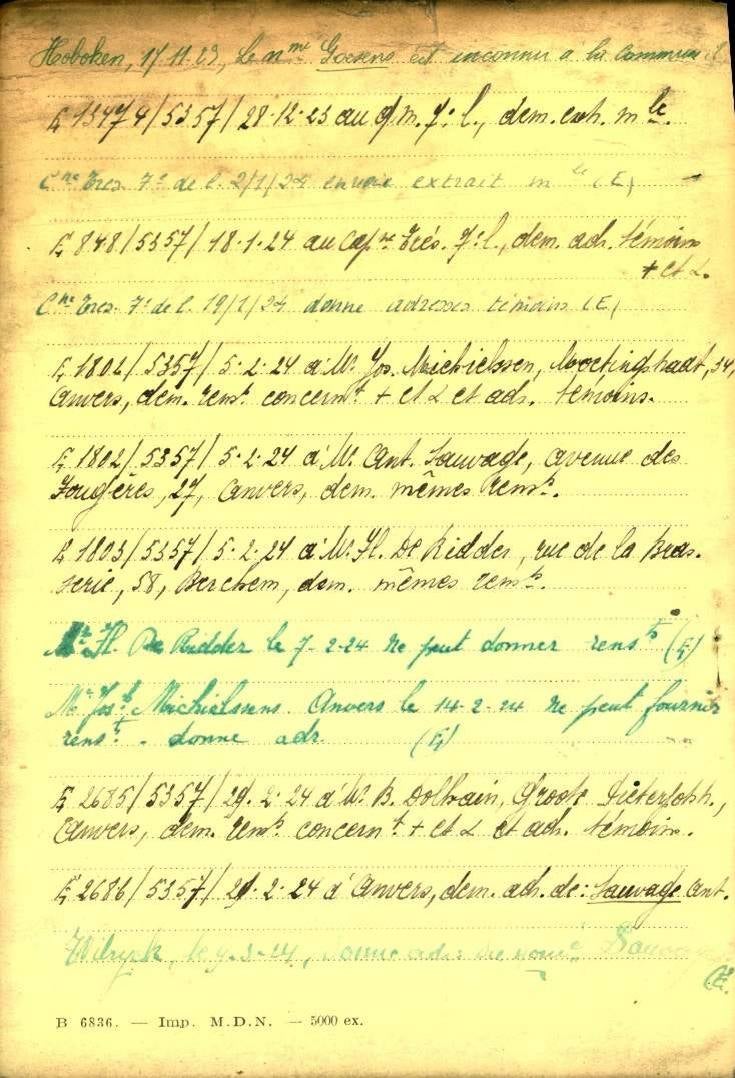 Hoboken, 17.11.23, Le nmé Goesens est inconnu à la Commune
E 13474/5357/28-12-23 au d.m. 7e l., dem. exh. mle.
Cne Tres. 7e de l. 2/1/24 envoie extrait mle (E)
E 848/5357/18-1-24 au Capne Trés. 7e l., dem. adr. témoins
+ et L.
Cne Tres. 7e de l. 19/1/24 donne adresses témoins (E)
E 1801/5357/5-2-24 à Mr. Jos. Michielssen, 34,
Anvers, dem. remts concernt + et L et adr. témoins.
E 1802/5357/5-2-24 à Mr. Ant. Sauvage, avenue des
Fougères, 27, Anvers, dem. mêmes remts.
E 1803/5357/5-2-24 à Mr. Fl. De Ridder, rue de la Bras-
serie, 58, Berchem, dem. mêmes remts.
Mr. Fl. De Ridder le 7-2-24 ne peut donner rensts (E)
Mr Josh Michielssens Anvers le 14-2-24 ne peut fournir
renst. - donne adr. (E)
E 2685/5357/29-2-24 à Mr. B. Dolhain, Groote,
Anvers, dem. remts concernt + et L et adr. témoins.
E 2686/5357/29-2-24 à Anvers, dem. adr. de: Sauvage Ant.
Wilryck, le 4-3-24, donne adr. du nommé Sauvage
(E.
B 6836. — Imp. M.D.N. — 5000 ex.